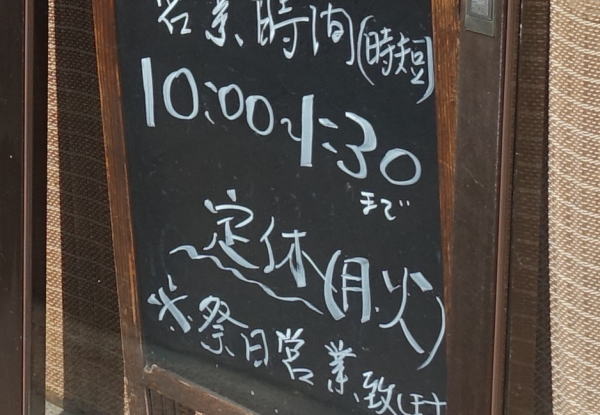 営業時間(時短)
10:00〜1:30
まで
定休(月.火)
※祭日営業致します